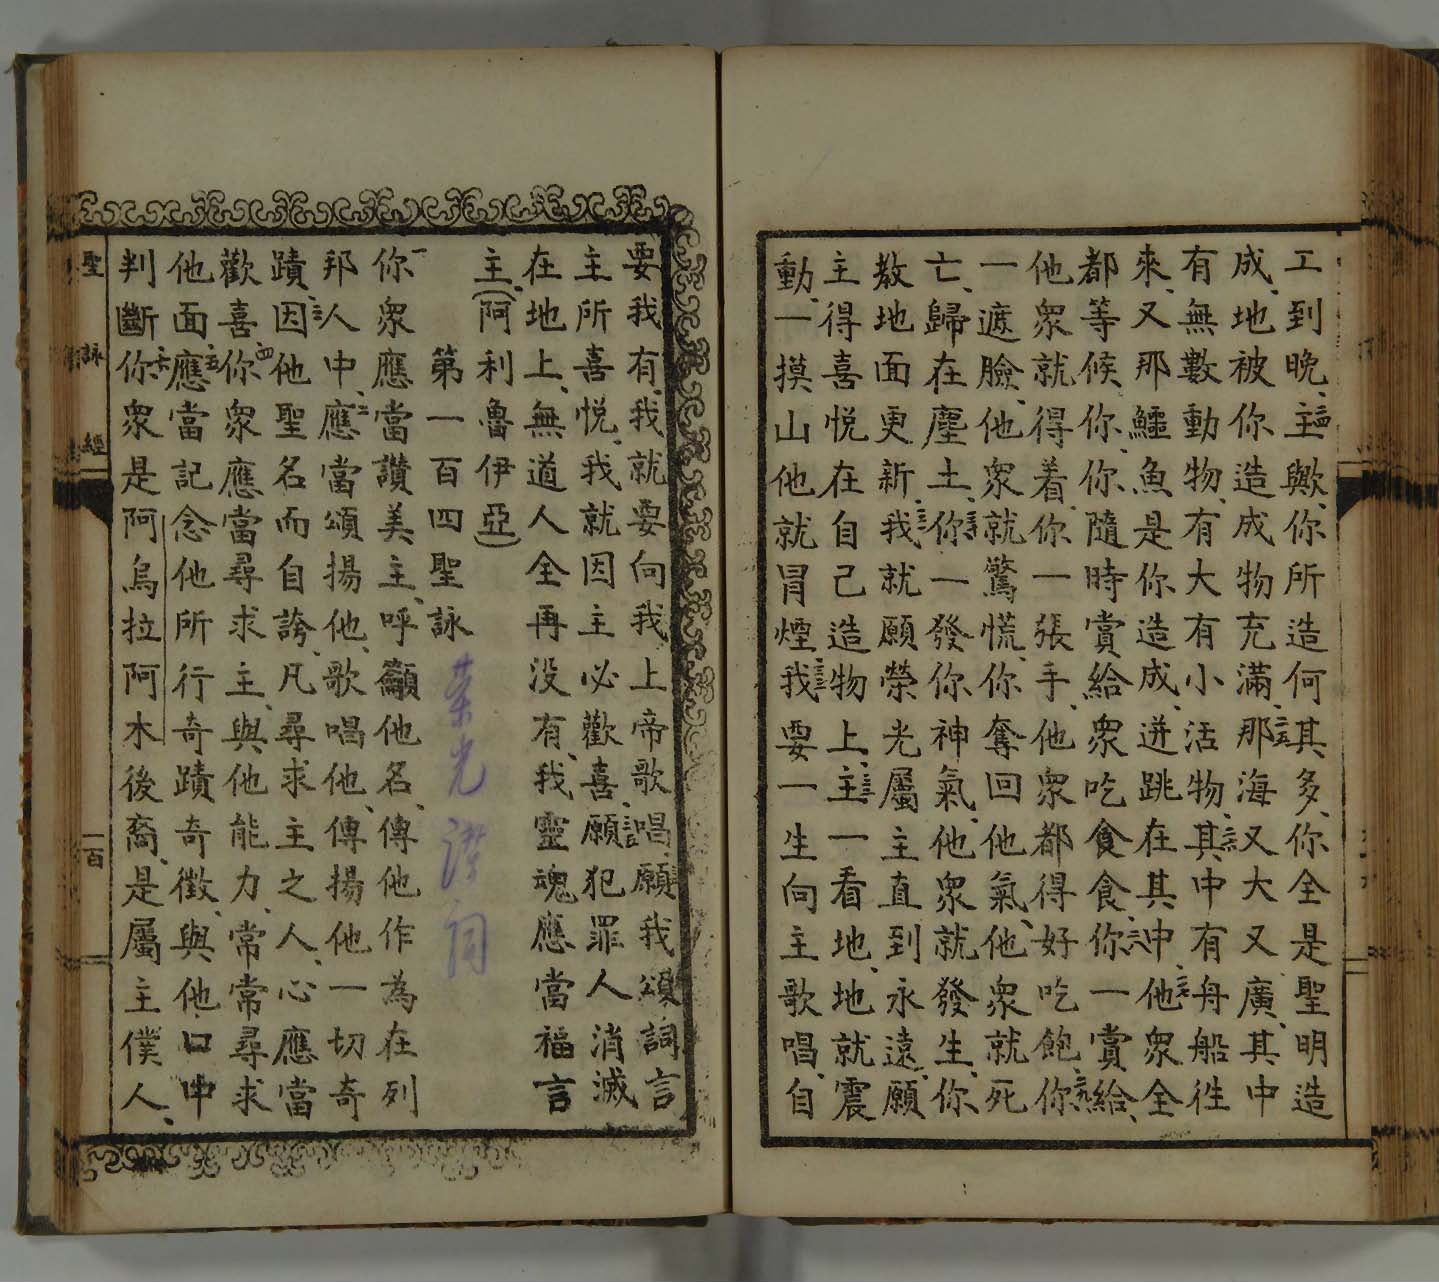 工到晚、二四主歟、你所造何其多、你全是聖明造
成、地被你造成物充滿、二五那海又大又廣、其中
有無數動物、有大有小活物、二六其中有舟船徃
來、又那鱷魚是你造成、迸跳在其中、二七他衆全
都等候、你、你隨時賞給衆吃食食、二八你一賞給、
他衆就得着、你一張手、他衆都得好吃飽、二九你
一遮臉、他衆就驚慌、你奪回他氣、他衆就死
亡、歸在塵土、三十你一發你神氣、他衆就發生、你
教地面更新、三一我就願榮光屬主直到永遠、願
主得喜悦在自己造物上、三二主一看地、地就震
動、一摸山他就冐煙、三三我要一生向主歌唱、自
要我有、我就要向我上帝歌唱、三四願我頌詞言
主所喜悦、我就因主必歡喜、三五願犯罪人消滅
在地上、無道人全再没有、我靈魂應當福言
主、(阿利魯伊亞)
第一百四聖詠
荣光讃詞
一你衆應當讃美主、呼籲他名、傳他作為在列
邦人中、二應當頌揚他、歌唱他、傳揚他一切奇
蹟、三因他聖名而自誇、凡尋求主之人、心應當
歡喜、四你衆應當尋求主、與他能力、常常尋求
他面、五應當記念他所行奇蹟奇徵、與他口中
判斷、六你衆是阿烏拉阿木後裔、是屬主僕人、
聖詠經
一百